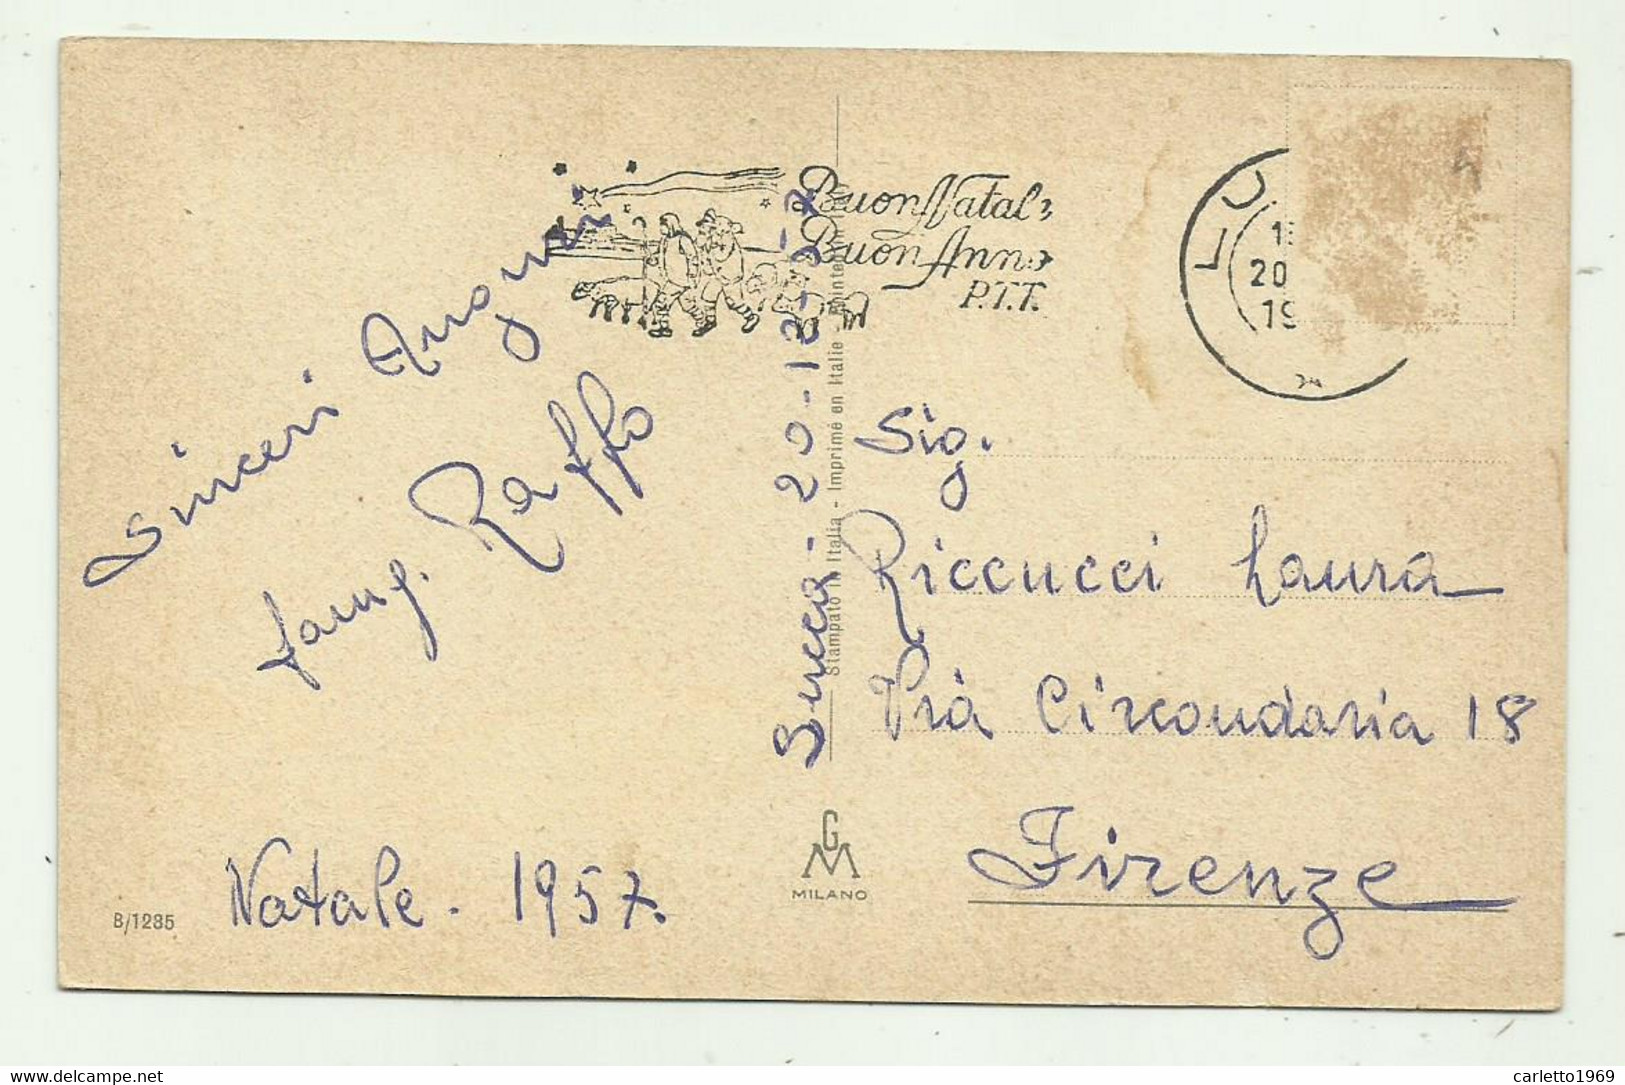 Buon Natale
Buon Anno
P.T.T.
LU
20
19
Sinceri Auguri
fam. Raffo
Natale. 1957.
Lucca - 20-12-57
Stampato in Italia - Imprimé en Italie - Printed in
Sig.
Riccucci Laura
Via Circondaria 18
Firenze
GM
MILANO
B/1285
delcampe.net
carletto1969